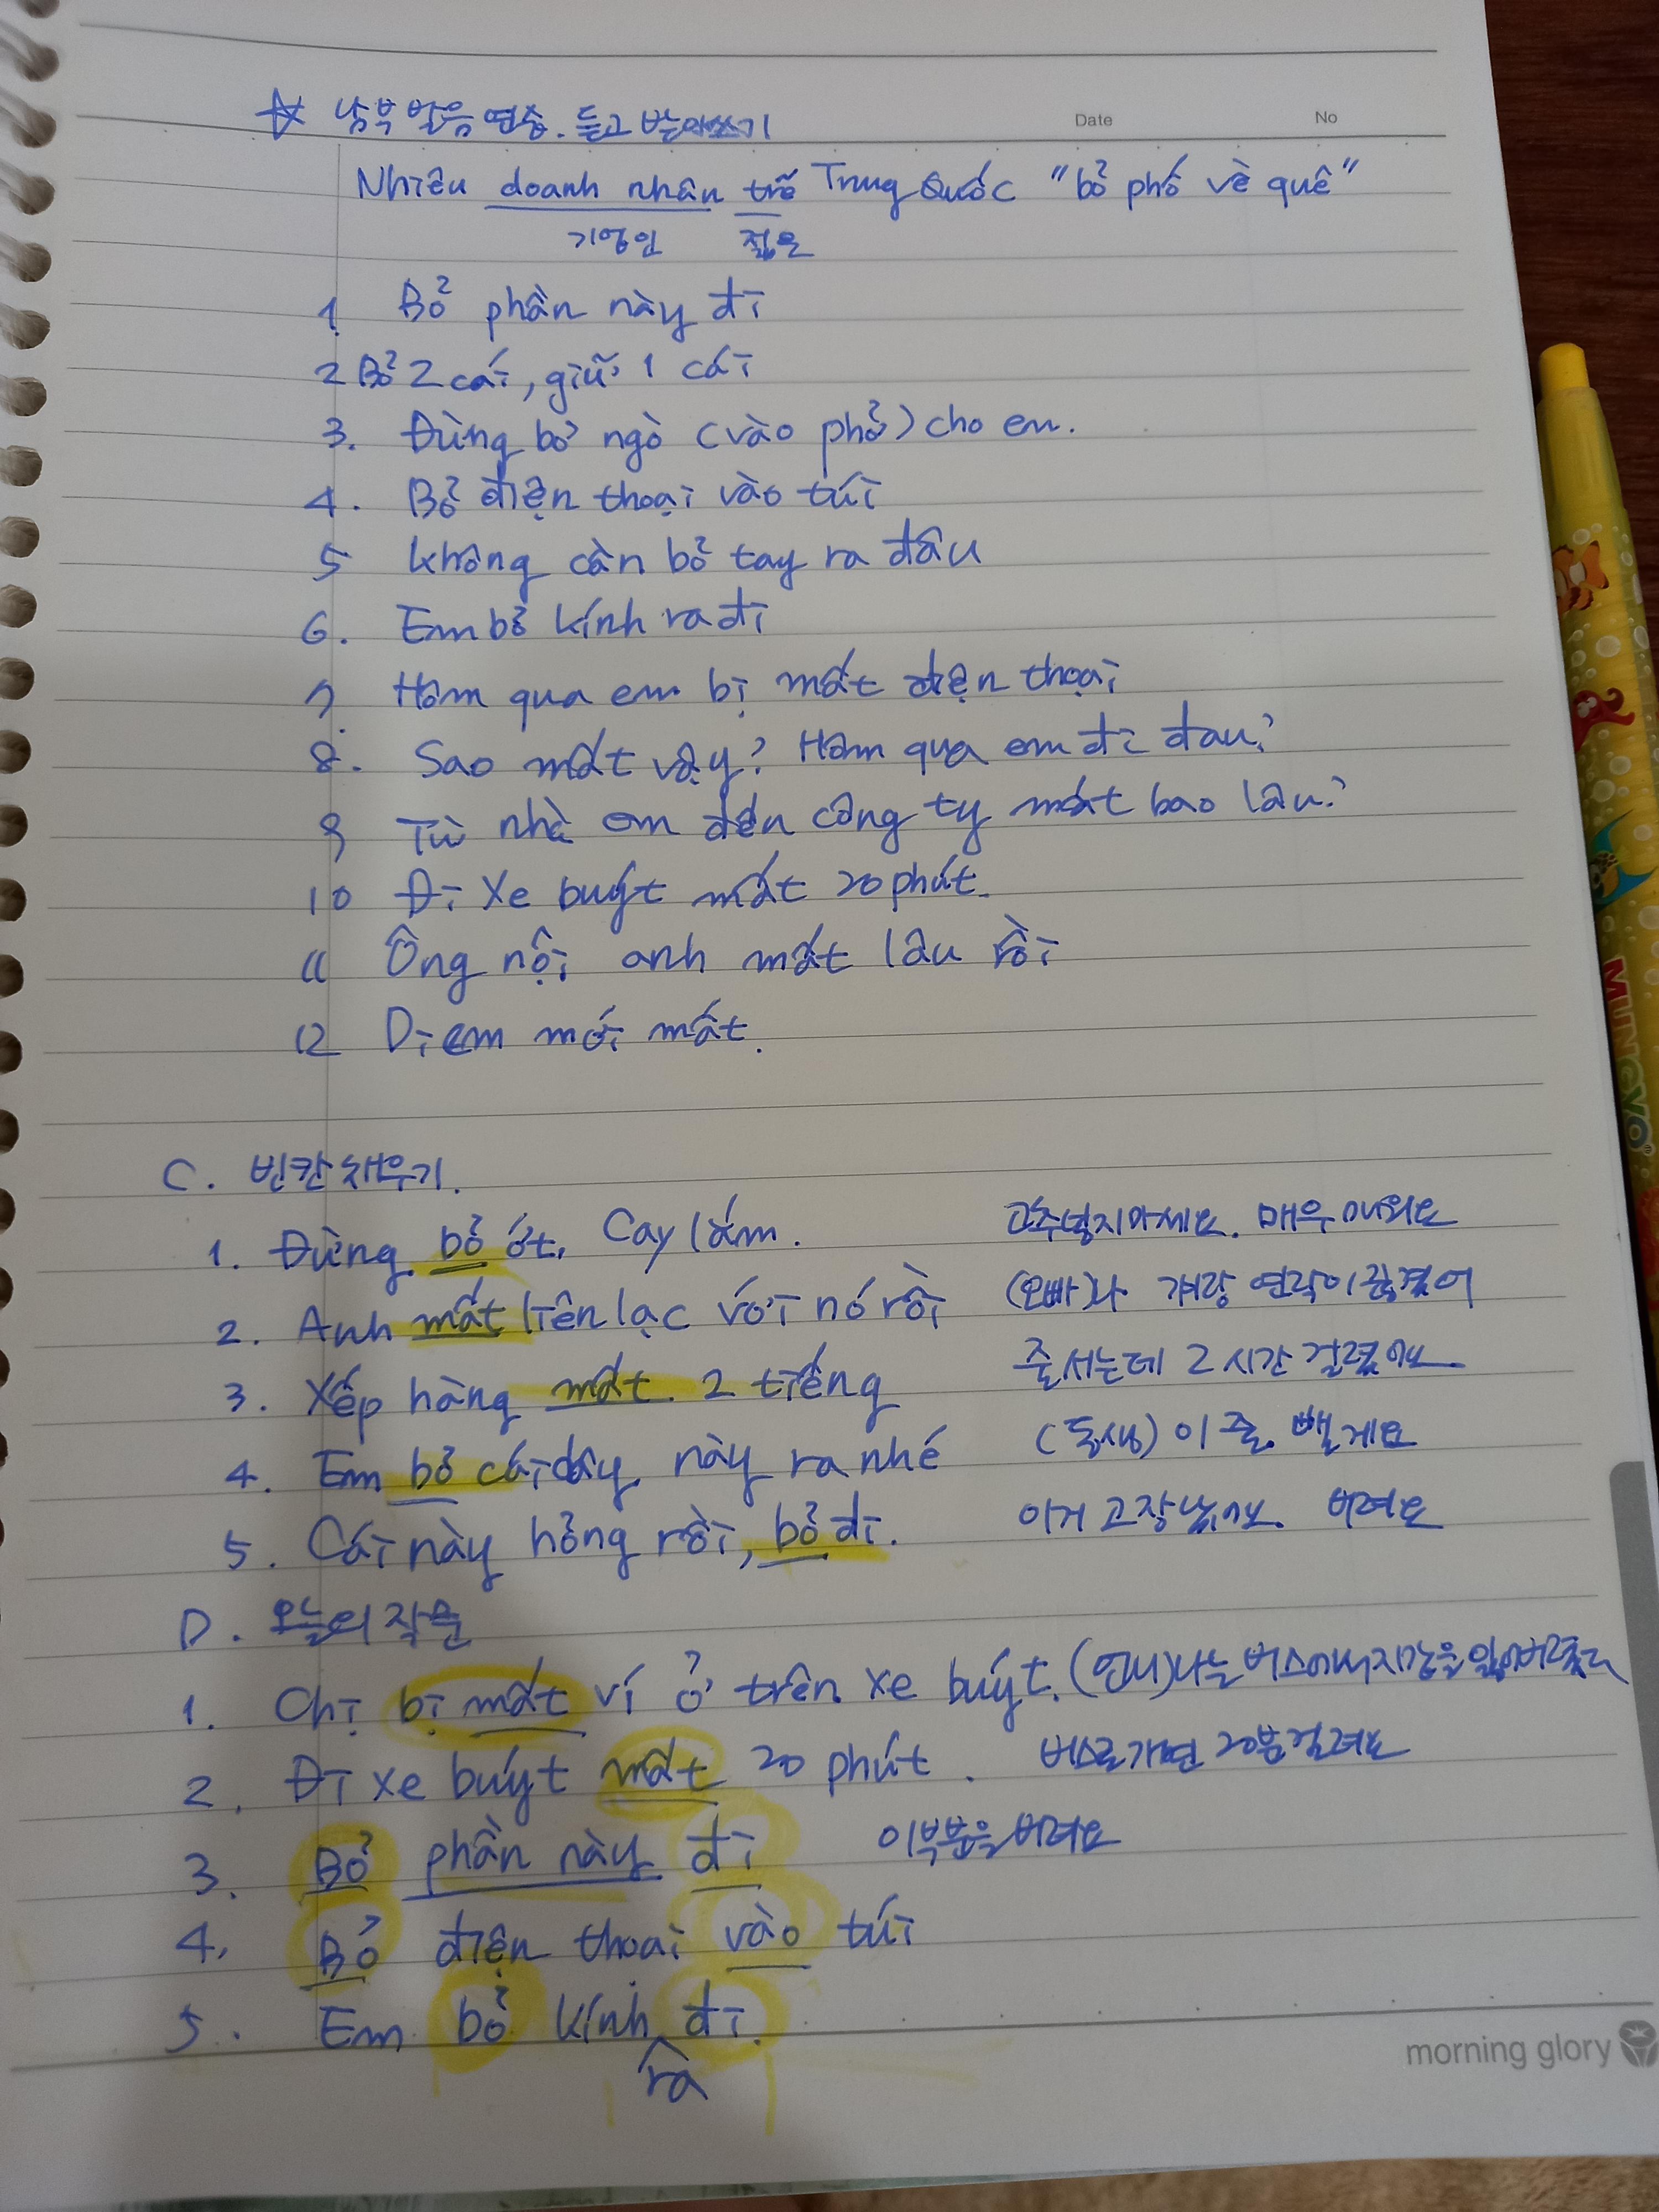 ☆ 남부 발음 연습. 듣고 받아쓰기
Date No
Nhiêu doanh nhân trẻ Trung Quốc "bỏ phố về quê"
기업인 젊은
1 Bỏ phần này đi
2 Bỏ 2 cái, giữ 1 cái
3. Đừng bỏ ngò (vào phở) cho em.
4. Bỏ điện thoại vào túi
5 không cần bỏ tay ra đâu
6. Em bỏ kính ra đi
7. Hôm qua em bị mất điện thoại
8. Sao mất vậy? Hôm qua em đi đau?
9 Từ nhà em đến công ty mất bao lâu?
10 Đi xe buýt mất 20 phút.
11 Ông nội anh mất lâu rồi
12 Dì em mới mất.
C. 빈칸 채우기.
1. Đừng bỏ ớt. Cay lắm. 고추넣지마세요. 매우 매워요
2. Anh mất liên lạc với nó rồi (오빠)나 걔랑 연락이 끊겼어
3. Xếp hàng mất 2 tiếng 줄 서는데 2시간 걸렸어요.
4. Em bỏ cái dây này ra nhé (동생) 이 줄 뺄게요
5. Cái này hỏng rồi, bỏ đi. 이거 고장났어요. 버려요
D. 오늘의 작문
1. Chị bị mất ví ở trên xe buýt. (언니)나는 버스에서 지갑을 잃어버렸다
2. Đi xe buýt mất 20 phút. 버스로 가면 20분 걸려요
3. Bỏ phần này đi 이 부분을 버려요
4. Bỏ điện thoại vào túi
5. Em bỏ kính ra đi.
morning glory
MUNGYO